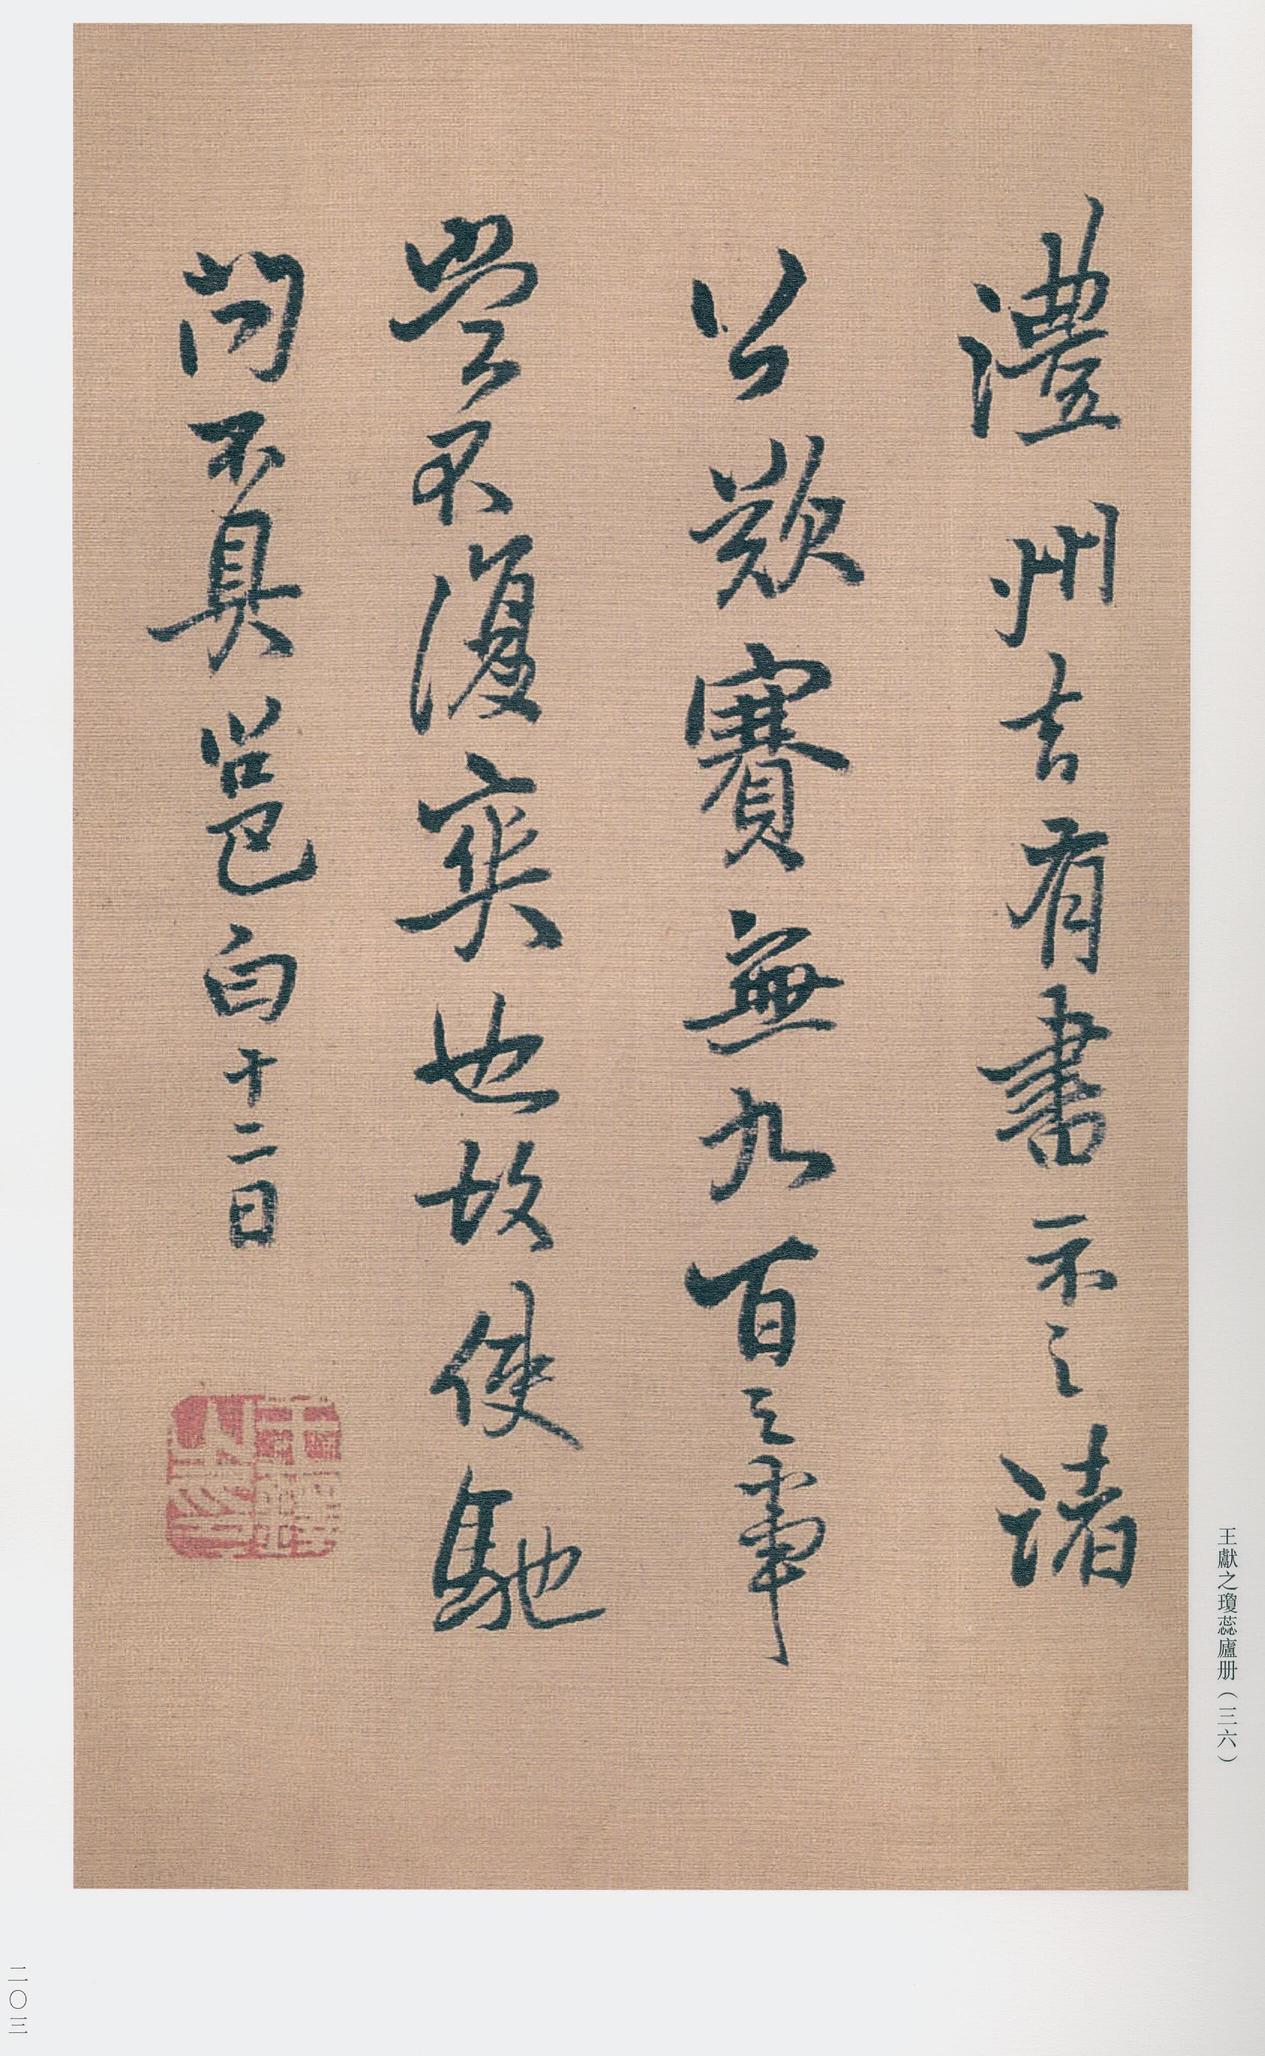 澧州吉有書示之諸
公欵賽無九百之事
必不復奕也故使馳
問不具邕白十二日
王獻之瓊蕊廬册（三六）
二〇三